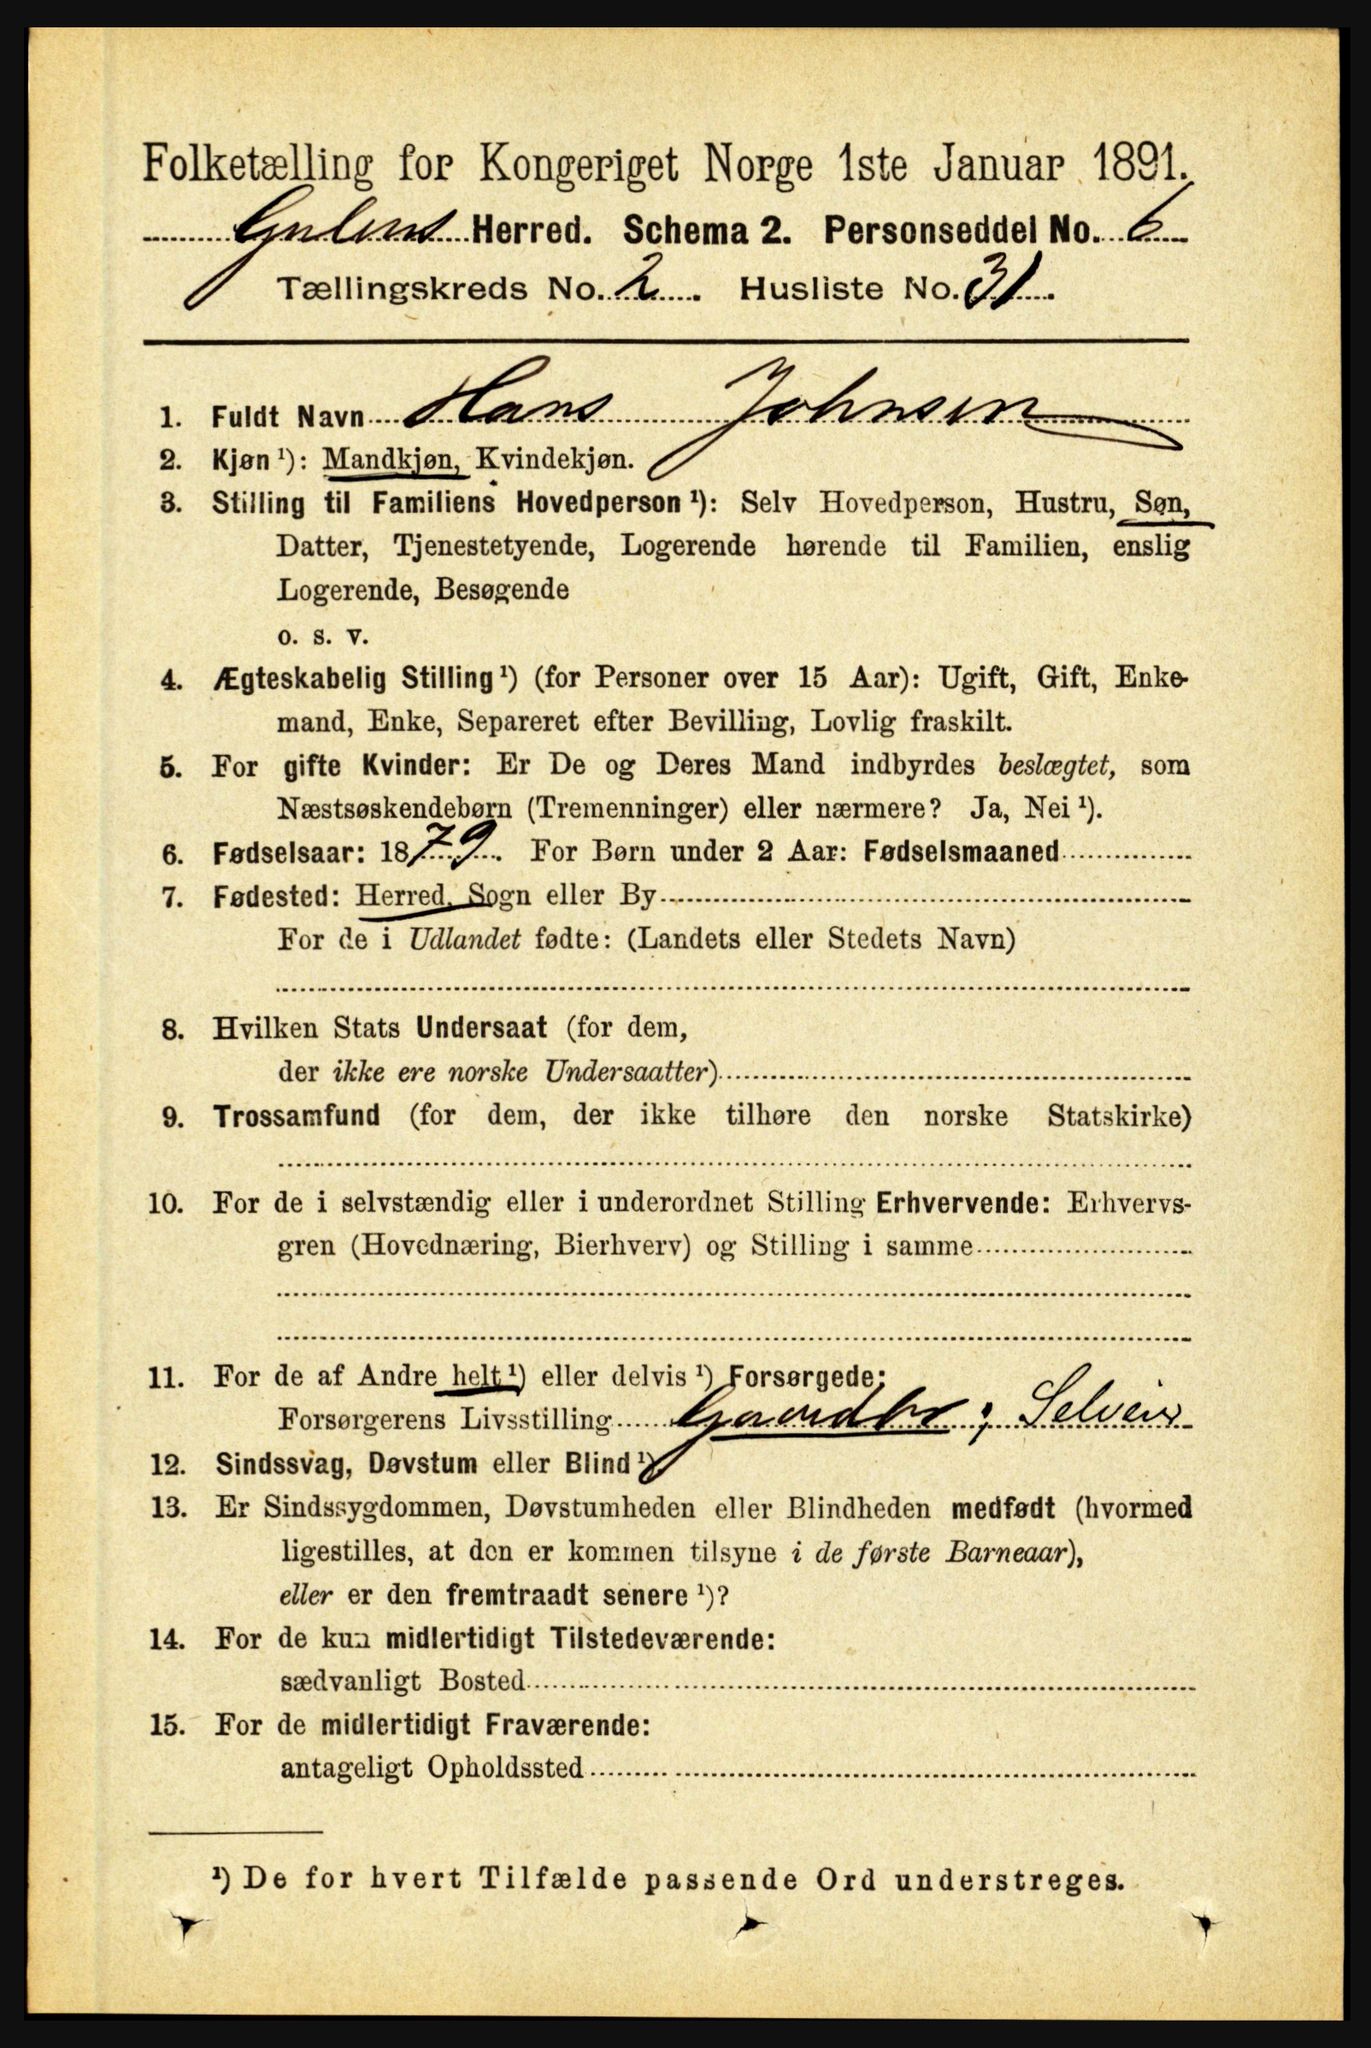 Folketælling for Kongeriget Norge 1ste Januar 1891.
Gulens Herred. Schema 2. Personseddel No. 6
Tællingskreds No. 2. Husliste No. 31.
1. Fuldt Navn Hans Johnsen
2. Kjøn ¹): Mandkjøn, Kvindekjøn.
3. Stilling til Familiens Hovedperson ¹): Selv Hovedperson, Hustru, Søn,
Datter, Tjenestetyende, Logerende hørende til Familien, enslig
Logerende, Besøgende
o. s. v.
4. Ægteskabelig Stilling ¹) (for Personer over 15 Aar): Ugift, Gift, Enke-
mand, Enke, Separeret efter Bevilling, Lovlig fraskilt.
5. For gifte Kvinder: Er De og Deres Mand indbyrdes beslægtet, som
Næstsøskendebørn (Tremenninger) eller nærmere? Ja, Nei ¹).
6. Fødselsaar: 1879. For Børn under 2 Aar: Fødselsmaaned
7. Fødested: Herred, Sogn eller By
For de i Udlandet fødte: (Landets eller Stedets Navn)
8. Hvilken Stats Undersaat (for dem,
der ikke ere norske Undersaatter)
9. Trossamfund (for dem, der ikke tilhøre den norske Statskirke)
10. For de i selvstændig eller i underordnet Stilling Erhvervende: Erhvervs-
gren (Hovednæring, Bierhverv) og Stilling i samme
11. For de af Andre helt ¹) eller delvis ¹) Forsørgede:
Forsørgerens Livsstilling Gaardbr; Selveier
12. Sindssvag, Døvstum eller Blind ¹)
13. Er Sindssygdommen, Døvstumheden eller Blindheden medfødt (hvormed
ligestilles, at den er kommen tilsyne i de første Barneaar),
eller er den fremtraadt senere ¹)?
14. For de kun midlertidigt Tilstedeværende:
sædvanligt Bosted
15. For de midlertidigt Fraværende:
antageligt Opholdssted
¹) De for hvert Tilfælde passende Ord understreges.